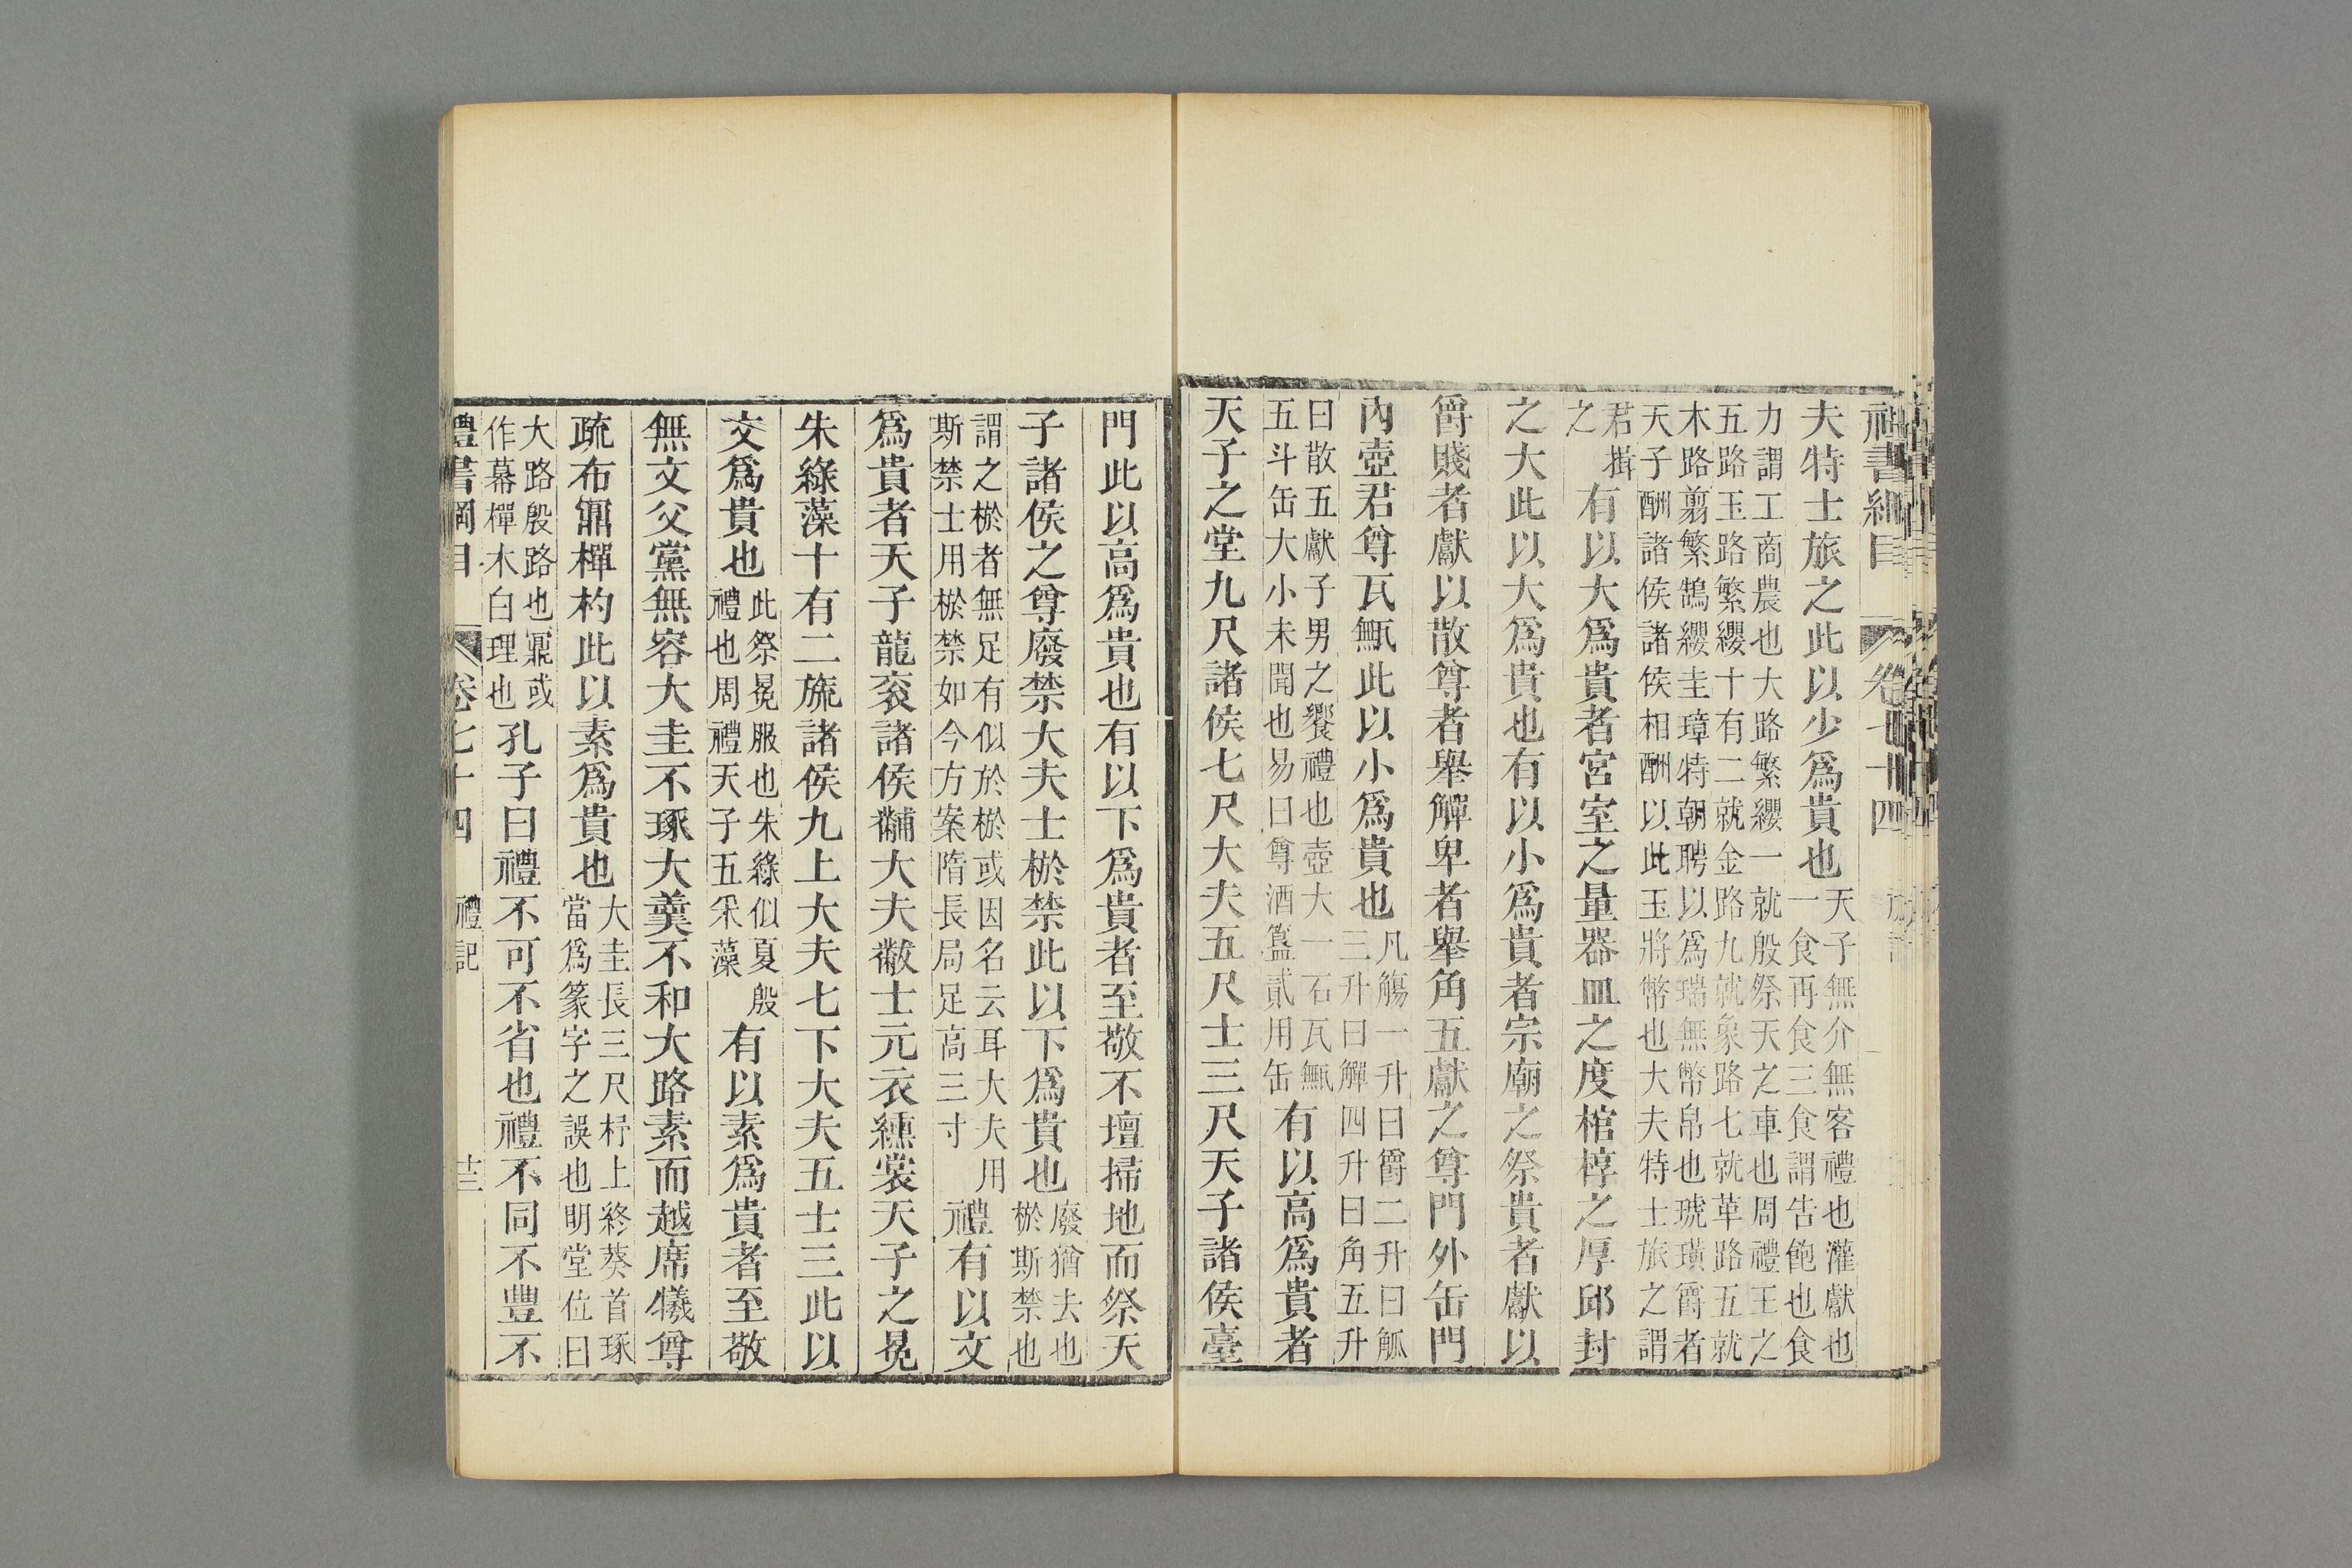 禮書綱目 卷七十四
夫特士旅之此以少爲貴也天子無介無客禮也灌獻也
一食再食三食謂告飽也食
力謂工商農也大路繁纓一就殷祭天之車也周禮王之
五路玉路繁纓十有二就金路九就象路七就革路五就
木路翦繁鵠纓圭璋特朝聘以爲瑞無幣帛也琥璜爵者
天子酬諸侯諸侯相酬以此玉將幣也大夫特士旅之謂
君揖
之
有以大爲貴者宮室之量器皿之度棺椁之厚邱封
之大此以大爲貴也有以小爲貴者宗廟之祭貴者獻以
爵賤者獻以散尊者舉觶卑者舉角五獻之尊門外缶門
內壺君尊瓦甒此以小爲貴也凡觴一升曰爵二升曰觚
三升曰觶四升曰角五升
曰散五獻子男之饗禮也壺大一石瓦甒
五斗缶大小未聞也易曰尊酒簋貳用缶
有以高爲貴者
天子之堂九尺諸侯七尺大夫五尺士三尺天子諸侯臺
門此以高爲貴也有以下爲貴者至敬不壇掃地而祭天
子諸侯之尊廢禁大夫士棜禁此以下爲貴也廢猶去也
棜斯禁也
謂之棜者無足有似於棜或因名云耳大夫用
斯禁士用棜禁如今方案隋長局足高三寸
禮有以文
爲貴者天子龍袞諸侯黼大夫黻士元衣纁裳天子之冕
朱綠藻十有二旒諸侯九上大夫七下大夫五士三此以
文爲貴也此祭冕服也朱綠似夏殷
禮也周禮天子五采藻
有以素爲貴者至敬
無文父黨無容大圭不琢大羹不和大路素而越席犧尊
疏布鼏樿杓此以素爲貴也大圭長三尺杼上終葵首琢
當爲篆字之誤也明堂位曰
大路殷路也鼏或
作幕樿木白理也
孔子曰禮不可不省也禮不同不豐不
禮書綱目 卷七十四 禮記